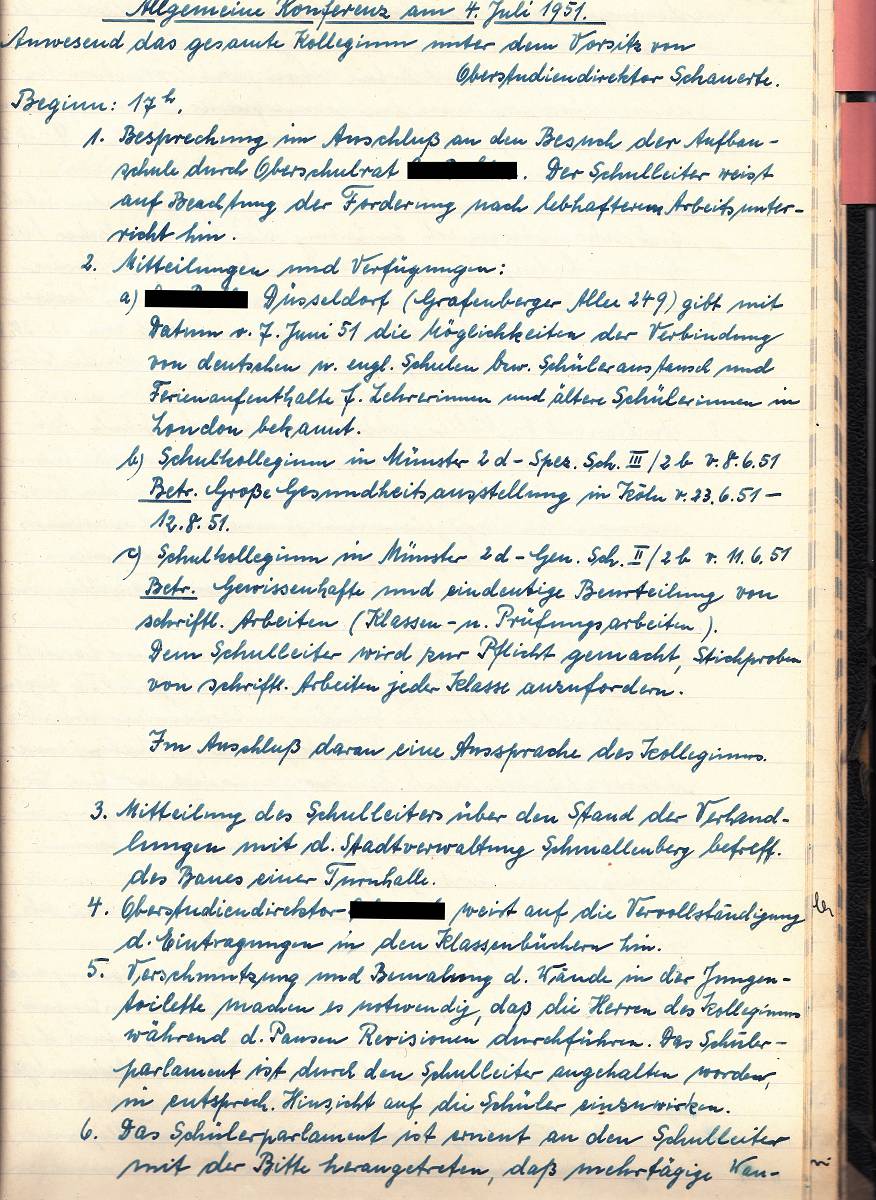 Allgemeine Konferenz am 4. Juli 1951.
Anwesend das gesamte Kollegium unter dem Vorsitz von
Oberstudiendirektor Schauerte.
Beginn: 17 h.
1. Besprechung im Anschluß an den Besuch der Aufbau-
schule durch Oberschulrat . Der Schulleiter weist
auf Beachtung der Forderung nach lebhafterem Arbeitsunter-
richt hin.
2. Mitteilungen und Verfügungen:
a) Düsseldorf (Grafenberger Allee 249) gibt mit
Datum v. 7. Juni 51 die Möglichkeiten der Verbindung
von deutschen u. engl. Schulen bzw. Schüleraustausch und
Ferienaufenthalte f. Lehrerinnen und ältere Schülerinnen in
London bekannt.
b) Schulkollegium in Münster 2d - Spez. Sch. III/2b v. 8.6.51
Betr. Große Gesundheitsausstellung in Köln v. 23.6.51 -
12.8.51.
c) Schulkollegium in Münster 2d - Gen. Sch. II/2b v. 11.6.51
Betr. Gewissenhafte und eindeutige Beurteilung von
schriftl. Arbeiten (Klassen- u. Prüfungsarbeiten).
Dem Schulleiter wird zur Pflicht gemacht, Stichproben
von schriftl. Arbeiten jeder Klasse anzufordern.
Im Anschluß daran eine Aussprache des Kollegiums.
3. Mitteilung des Schulleiters über den Stand der Verhand-
lungen mit d. Stadtverwaltung Schmallenberg betreff.
des Baues einer Turnhalle.
4. Oberstudiendirektor weist auf die Vervollständigung
d. Eintragungen in den Klassenbüchern hin.
5. Verschmutzung und Bemalung d. Wände in der Jungen-
toilette machen es notwendig, daß die Herren des Kollegiums
während d. Pausen Revisionen durchführen. Das Schüler-
parlament ist durch den Schulleiter angehalten worden,
in entsprech. Hinsicht auf die Schüler einzuwirken.
6. Das Schülerparlament ist erneut an den Schulleiter
mit der Bitte herangetreten, daß mehrtägige Wan-